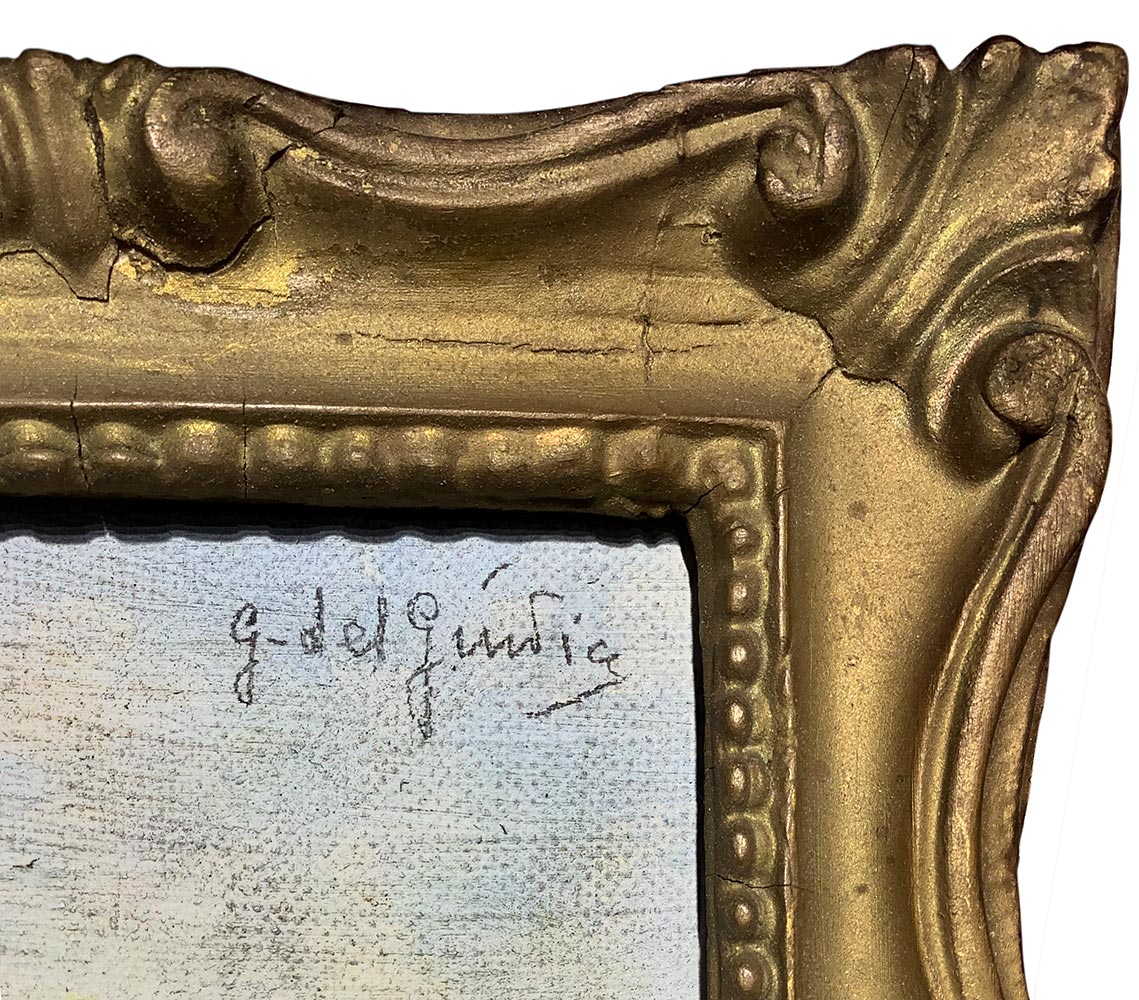 G. del Giudice